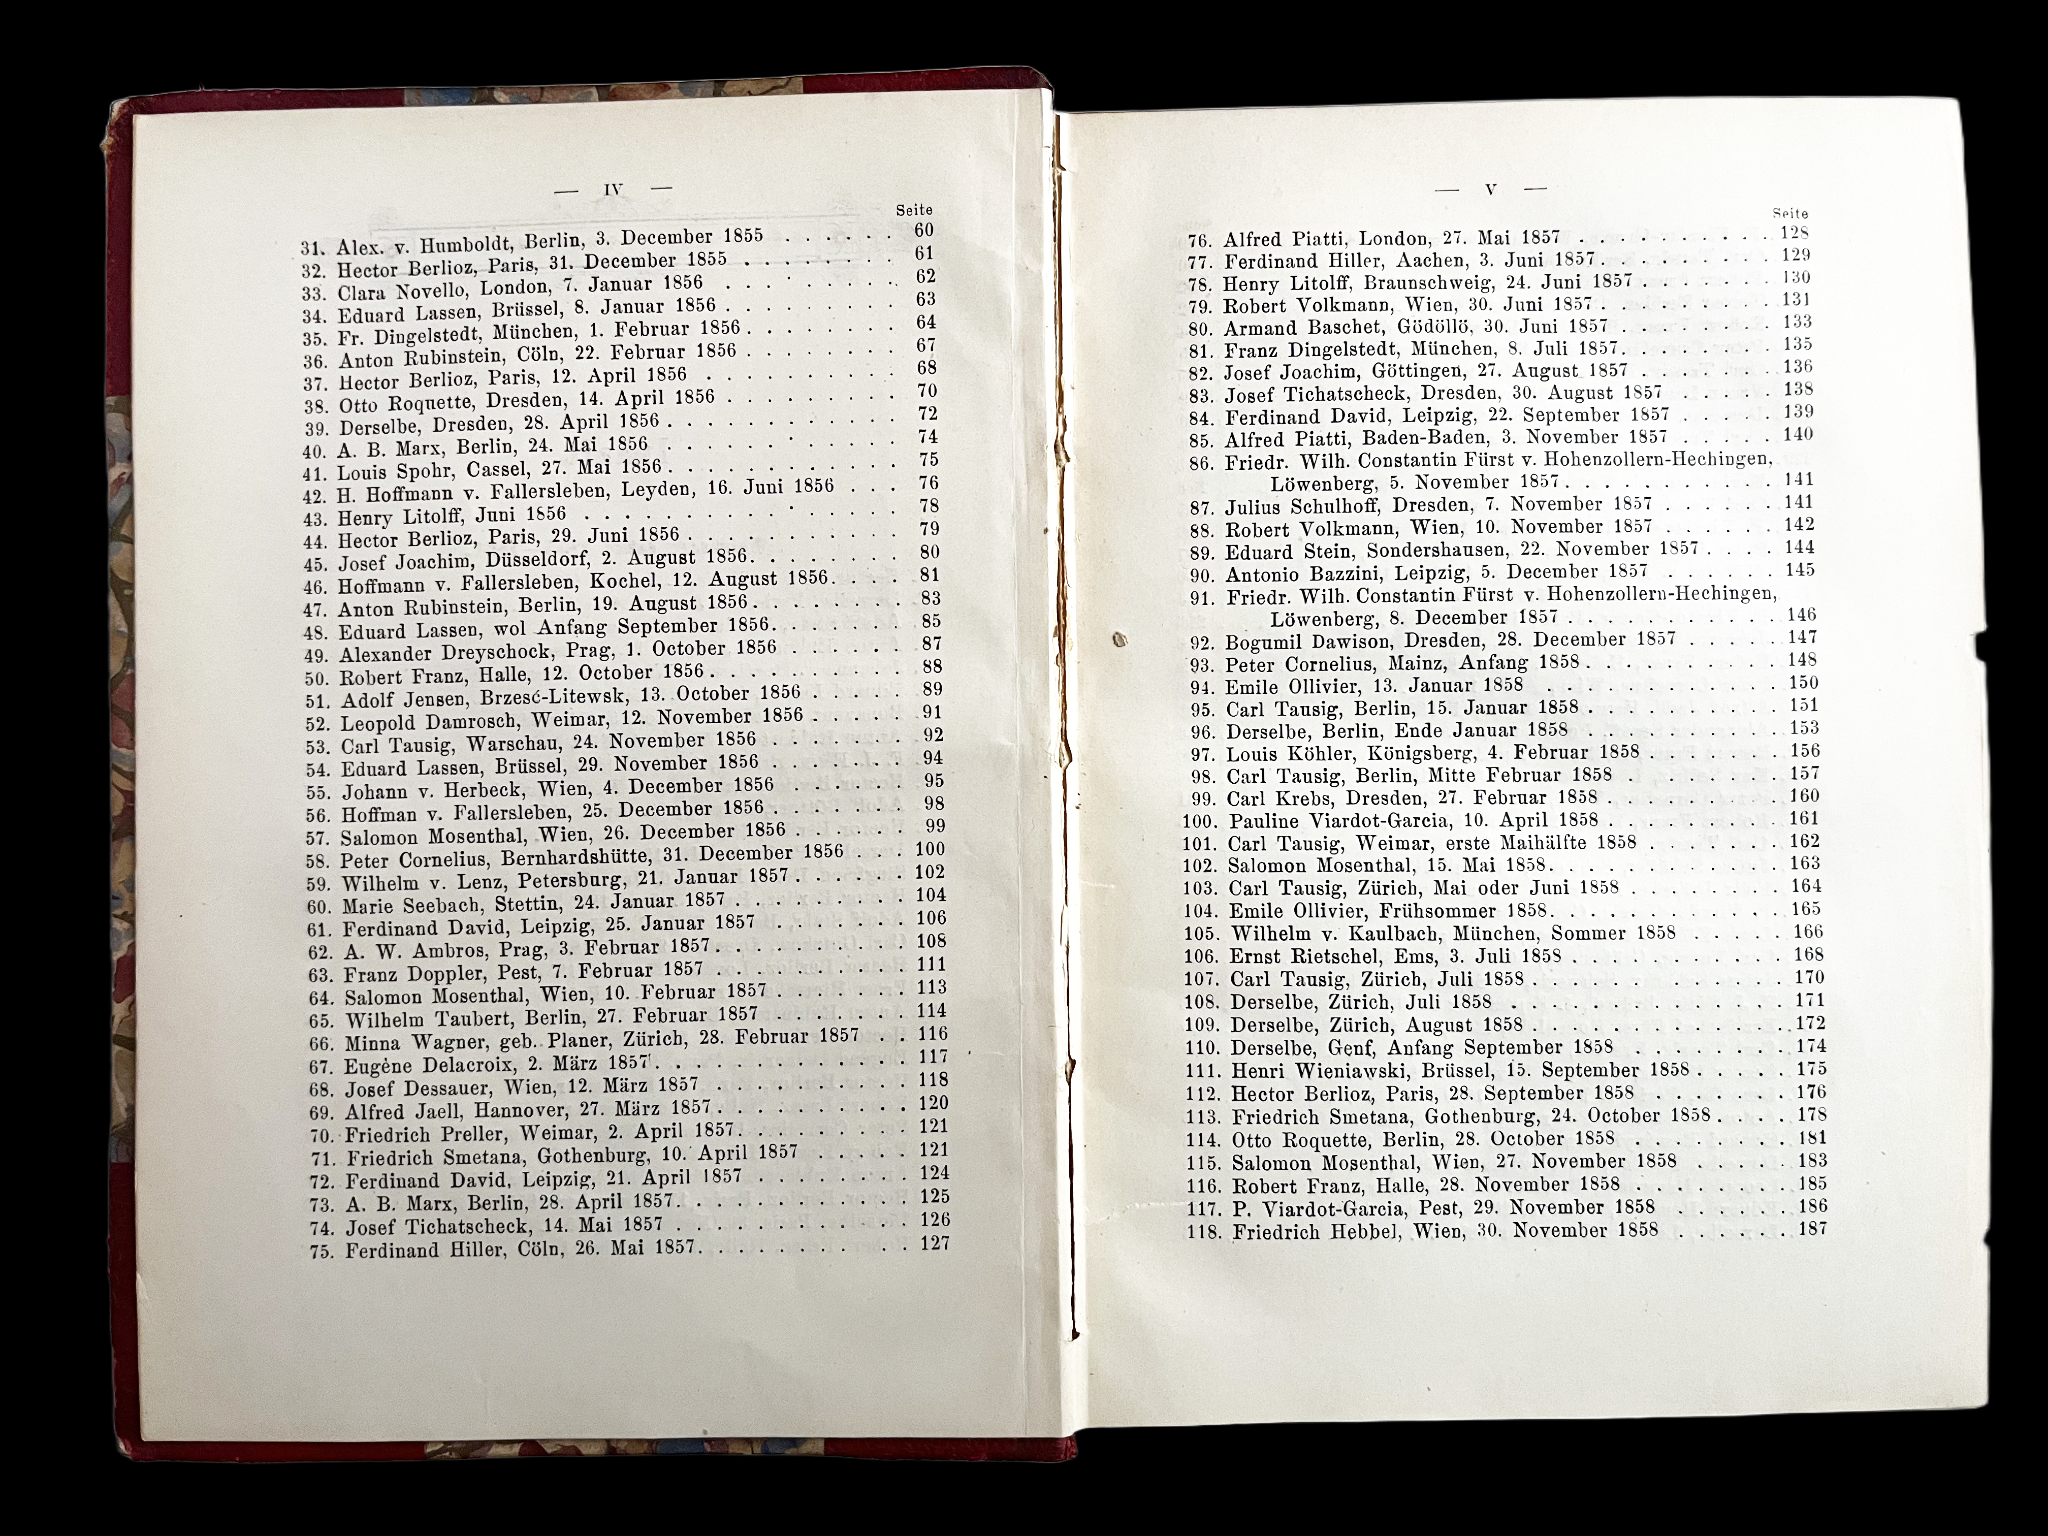 — IV —
Seite
31. Alex. v. Humboldt, Berlin, 3. December 1855 . . . . . . 60
32. Hector Berlioz, Paris, 31. December 1855 . . . . . . . . 61
33. Clara Novello, London, 7. Januar 1856 . . . . . . . . . 62
34. Eduard Lassen, Brüssel, 8. Januar 1856 . . . . . . . . . 63
35. Fr. Dingelstedt, München, 1. Februar 1856 . . . . . . . . 64
36. Anton Rubinstein, Cöln, 22. Februar 1856 . . . . . . . . 67
37. Hector Berlioz, Paris, 12. April 1856 . . . . . . . . . 68
38. Otto Roquette, Dresden, 14. April 1856 . . . . . . . . . 70
39. Derselbe, Dresden, 28. April 1856 . . . . . . . . . . . 72
40. A. B. Marx, Berlin, 24. Mai 1856 . . . . . . . . . . . 74
41. Louis Spohr, Cassel, 27. Mai 1856 . . . . . . . . . . . 75
42. H. Hoffmann v. Fallersleben, Leyden, 16. Juni 1856 . . . 76
43. Henry Litolff, Juni 1856 . . . . . . . . . . . . . . . 78
44. Hector Berlioz, Paris, 29. Juni 1856 . . . . . . . . . . 79
45. Josef Joachim, Düsseldorf, 2. August 1856 . . . . . . . . 80
46. Hoffmann v. Fallersleben, Kochel, 12. August 1856 . . . . 81
47. Anton Rubinstein, Berlin, 19. August 1856 . . . . . . . . 83
48. Eduard Lassen, wol Anfang September 1856 . . . . . . . . 85
49. Alexander Dreyschock, Prag, 1. October 1856 . . . . . . 87
50. Robert Franz, Halle, 12. October 1856 . . . . . . . . . 88
51. Adolf Jensen, Brzesć-Litewsk, 13. October 1856 . . . . . 89
52. Leopold Damrosch, Weimar, 12. November 1856 . . . . . 91
53. Carl Tausig, Warschau, 24. November 1856 . . . . . . . 92
54. Eduard Lassen, Brüssel, 29. November 1856 . . . . . . . 94
55. Johann v. Herbeck, Wien, 4. December 1856 . . . . . . 95
56. Hoffman v. Fallersleben, 25. December 1856 . . . . . . . 98
57. Salomon Mosenthal, Wien, 26. December 1856 . . . . . . 99
58. Peter Cornelius, Bernhardshütte, 31. December 1856 . . . 100
59. Wilhelm v. Lenz, Petersburg, 21. Januar 1857 . . . . . . 102
60. Marie Seebach, Stettin, 24. Januar 1857 . . . . . . . . . 104
61. Ferdinand David, Leipzig, 25. Januar 1857 . . . . . . . 106
62. A. W. Ambros, Prag, 3. Februar 1857 . . . . . . . . . . 108
63. Franz Doppler, Pest, 7. Februar 1857 . . . . . . . . . . 111
64. Salomon Mosenthal, Wien, 10. Februar 1857 . . . . . . . 113
65. Wilhelm Taubert, Berlin, 27. Februar 1857 . . . . . . . 114
66. Minna Wagner, geb. Planer, Zürich, 28. Februar 1857 . . 116
67. Eugène Delacroix, 2. März 1857 . . . . . . . . . . . . 117
68. Josef Dessauer, Wien, 12. März 1857 . . . . . . . . . . 118
69. Alfred Jaell, Hannover, 27. März 1857 . . . . . . . . . . 120
70. Friedrich Preller, Weimar, 2. April 1857 . . . . . . . . . 121
71. Friedrich Smetana, Gothenburg, 10. April 1857 . . . . . 121
72. Ferdinand David, Leipzig, 21. April 1857 . . . . . . . . 124
73. A. B. Marx, Berlin, 28. April 1857 . . . . . . . . . . . 125
74. Josef Tichatscheck, 14. Mai 1857 . . . . . . . . . . . . 126
75. Ferdinand Hiller, Cöln, 26. Mai 1857 . . . . . . . . . . 127
— V —
Seite
76. Alfred Piatti, London, 27. Mai 1857 . . . . . . . . . . 128
77. Ferdinand Hiller, Aachen, 3. Juni 1857 . . . . . . . . . 129
78. Henry Litolff, Braunschweig, 24. Juni 1857 . . . . . . . 130
79. Robert Volkmann, Wien, 30. Juni 1857 . . . . . . . . . 131
80. Armand Baschet, Gödöllö, 30. Juni 1857 . . . . . . . . 133
81. Franz Dingelstedt, München, 8. Juli 1857 . . . . . . . . 135
82. Josef Joachim, Göttingen, 27. August 1857 . . . . . . . 136
83. Josef Tichatscheck, Dresden, 30. August 1857 . . . . . 138
84. Ferdinand David, Leipzig, 22. September 1857 . . . . . 139
85. Alfred Piatti, Baden-Baden, 3. November 1857 . . . . . 140
86. Friedr. Wilh. Constantin Fürst v. Hohenzollern-Hechingen,
Löwenberg, 5. November 1857 . . . . . . . . . . . 141
87. Julius Schulhoff, Dresden, 7. November 1857 . . . . . . 141
88. Robert Volkmann, Wien, 10. November 1857 . . . . . . 142
89. Eduard Stein, Sondershausen, 22. November 1857 . . . . 144
90. Antonio Bazzini, Leipzig, 5. December 1857 . . . . . . 145
91. Friedr. Wilh. Constantin Fürst v. Hohenzollern-Hechingen,
Löwenberg, 8. December 1857 . . . . . . . . . . . 146
92. Bogumil Dawison, Dresden, 28. December 1857 . . . . . 147
93. Peter Cornelius, Mainz, Anfang 1858 . . . . . . . . . . 148
94. Emile Ollivier, 13. Januar 1858 . . . . . . . . . . . . 150
95. Carl Tausig, Berlin, 15. Januar 1858 . . . . . . . . . . 151
96. Derselbe, Berlin, Ende Januar 1858 . . . . . . . . . . 153
97. Louis Köhler, Königsberg, 4. Februar 1858 . . . . . . . 156
98. Carl Tausig, Berlin, Mitte Februar 1858 . . . . . . . . 157
99. Carl Krebs, Dresden, 27. Februar 1858 . . . . . . . . . 160
100. Pauline Viardot-Garcia, 10. April 1858 . . . . . . . . . 161
101. Carl Tausig, Weimar, erste Maihälfte 1858 . . . . . . . 162
102. Salomon Mosenthal, 15. Mai 1858 . . . . . . . . . . . . 163
103. Carl Tausig, Zürich, Mai oder Juni 1858 . . . . . . . . 164
104. Emile Ollivier, Frühsommer 1858 . . . . . . . . . . . . 165
105. Wilhelm v. Kaulbach, München, Sommer 1858 . . . . . 166
106. Ernst Rietschel, Ems, 3. Juli 1858 . . . . . . . . . . . 168
107. Carl Tausig, Zürich, Juli 1858 . . . . . . . . . . . . . 170
108. Derselbe, Zürich, Juli 1858 . . . . . . . . . . . . . . 171
109. Derselbe, Zürich, August 1858 . . . . . . . . . . . . . 172
110. Derselbe, Genf, Anfang September 1858 . . . . . . . . 174
111. Henri Wieniawski, Brüssel, 15. September 1858 . . . . . 175
112. Hector Berlioz, Paris, 28. September 1858 . . . . . . . 176
113. Friedrich Smetana, Gothenburg, 24. October 1858 . . . . 178
114. Otto Roquette, Berlin, 28. October 1858 . . . . . . . . 181
115. Salomon Mosenthal, Wien, 27. November 1858 . . . . . 183
116. Robert Franz, Halle, 28. November 1858 . . . . . . . . 185
117. P. Viardot-Garcia, Pest, 29. November 1858 . . . . . . 186
118. Friedrich Hebbel, Wien, 30. November 1858 . . . . . . 187